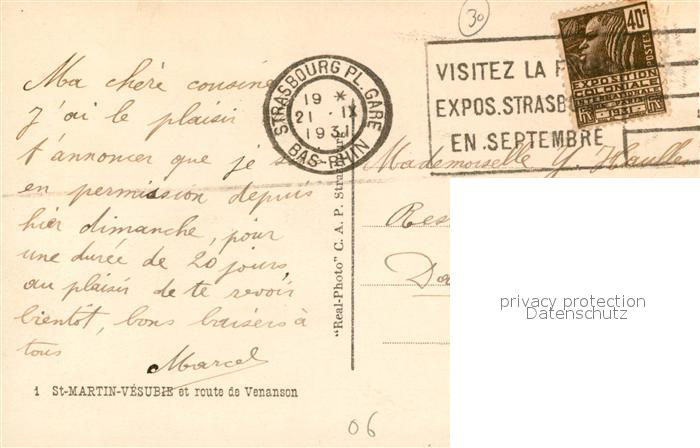 30
40c
POSTES
EXPOSITION
COLONIALE
STRASBOURG PL. GARE
19 *
21 - IX
1931
BAS-RHIN
VISITEZ LA F
EXPOS. STRASBO
EN SEPTEMBRE
Ma chère cousine
J'ai le plaisir
t'annoncer que je s
en permission depuis
hier dimanche, pour
une durée de 20 jours
au plaisir de te revoir
bientôt, bons baisers à
tous
Marcel
Mademoiselle Y.
Res
Da
"Real-Photo" C. A. P. Stras
1 St-MARTIN-VÉSUBIE et route de Venanson
06
privacy protection
Datenschutz